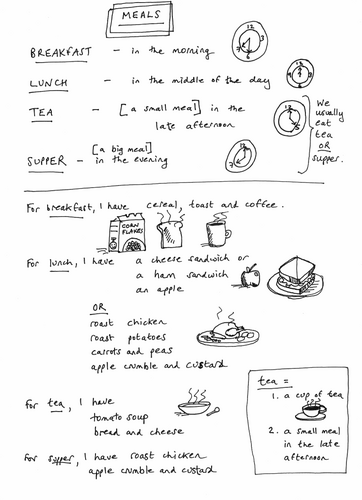 MEALS
BREAKFAST - in the morning
LUNCH - in the middle of the day
TEA - [a small meal] in the
late afternoon
SUPPER - [a big meal]
in the evening
We
usually
eat
tea
OR
supper.
For breakfast, I have cereal, toast and coffee.
CORN
FLAKES
For lunch, I have a cheese sandwich or
a ham sandwich
an apple
OR
roast chicken
roast potatoes
carrots and peas
apple crumble and custard
For tea, I have
tomato soup
bread and cheese
For supper, I have roast chicken
apple crumble and custard
tea =
1. a cup of tea
2. a small meal
in the late
afternoon